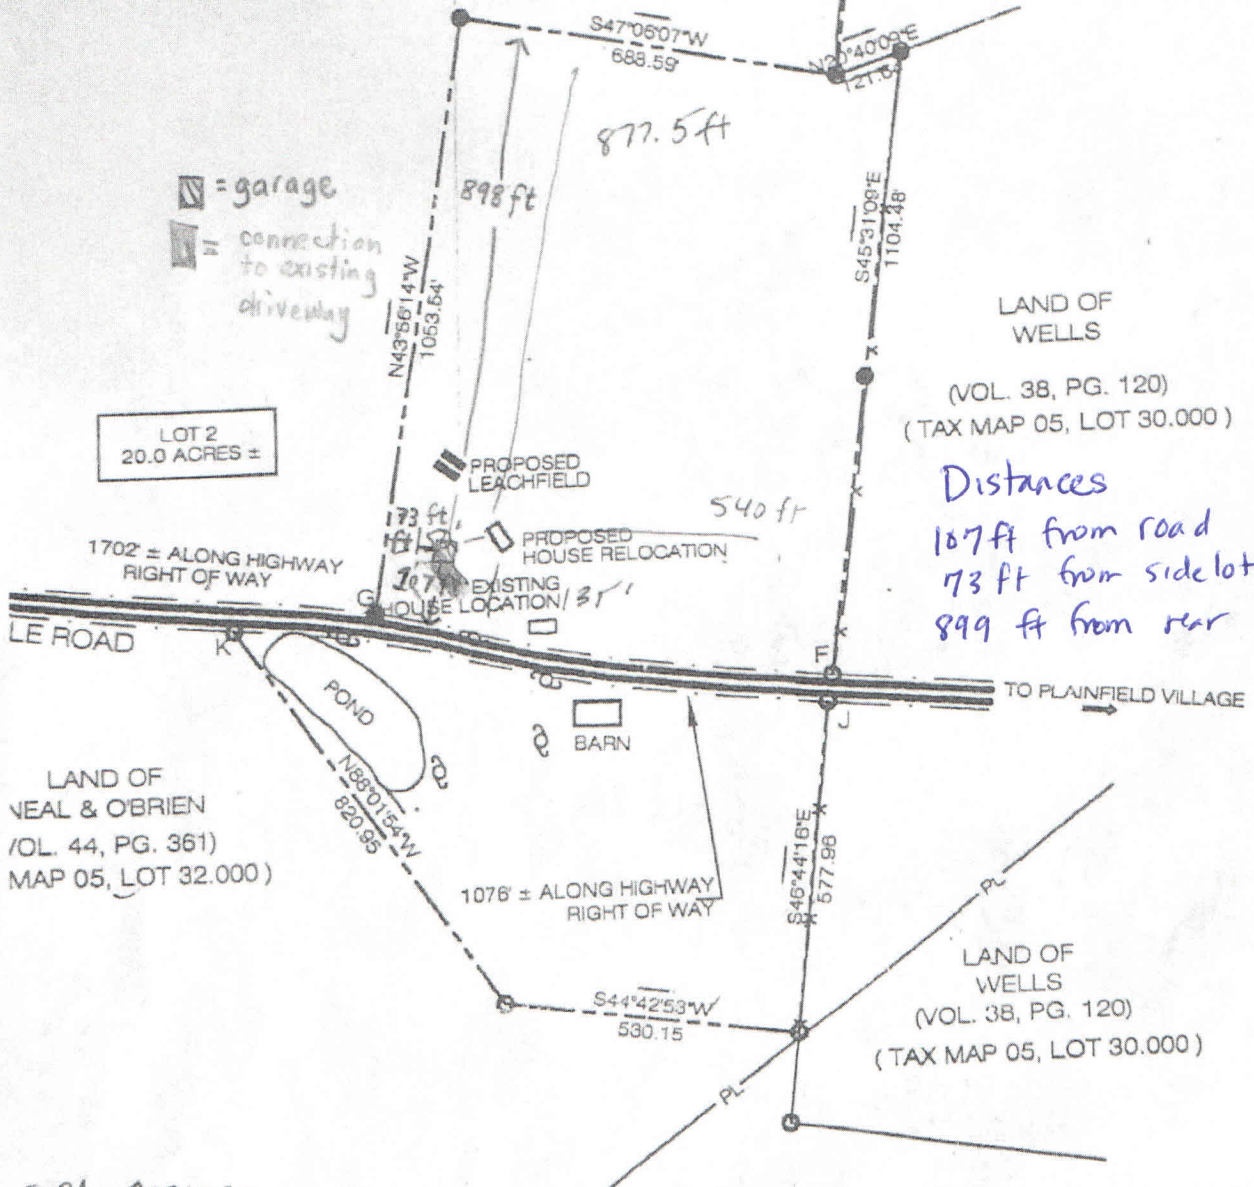 S47°06'07"W
688.59'
N20°40'09"E
121.64
877.5 ft
898 ft
= garage
= connection
to existing
driveway
N43°56'14"W
1053.54'
S45°31'09"E
1104.48'
LAND OF
WELLS
(VOL. 38, PG. 120)
(TAX MAP 05, LOT 30.000)
LOT 2
20.0 ACRES ±
PROPOSED
LEACHFIELD
Distances
107ft from road
73 ft from side lot
899 ft from rear
73 ft
540 ft
PROPOSED
HOUSE RELOCATION
1702' ± ALONG HIGHWAY
RIGHT OF WAY
107
EXISTING
HOUSE LOCATION
135'
G
LE ROAD
K
F
TO PLAINFIELD VILLAGE
J
POND
BARN
LAND OF
NEAL & O'BRIEN
/OL. 44, PG. 361)
MAP 05, LOT 32.000)
N88°01'54"W
820.95
1076' ± ALONG HIGHWAY
RIGHT OF WAY
S46°44'16"E
577.96
PL
S44°42'53"W
530.15
LAND OF
WELLS
(VOL. 38, PG. 120)
(TAX MAP 05, LOT 30.000)
PL